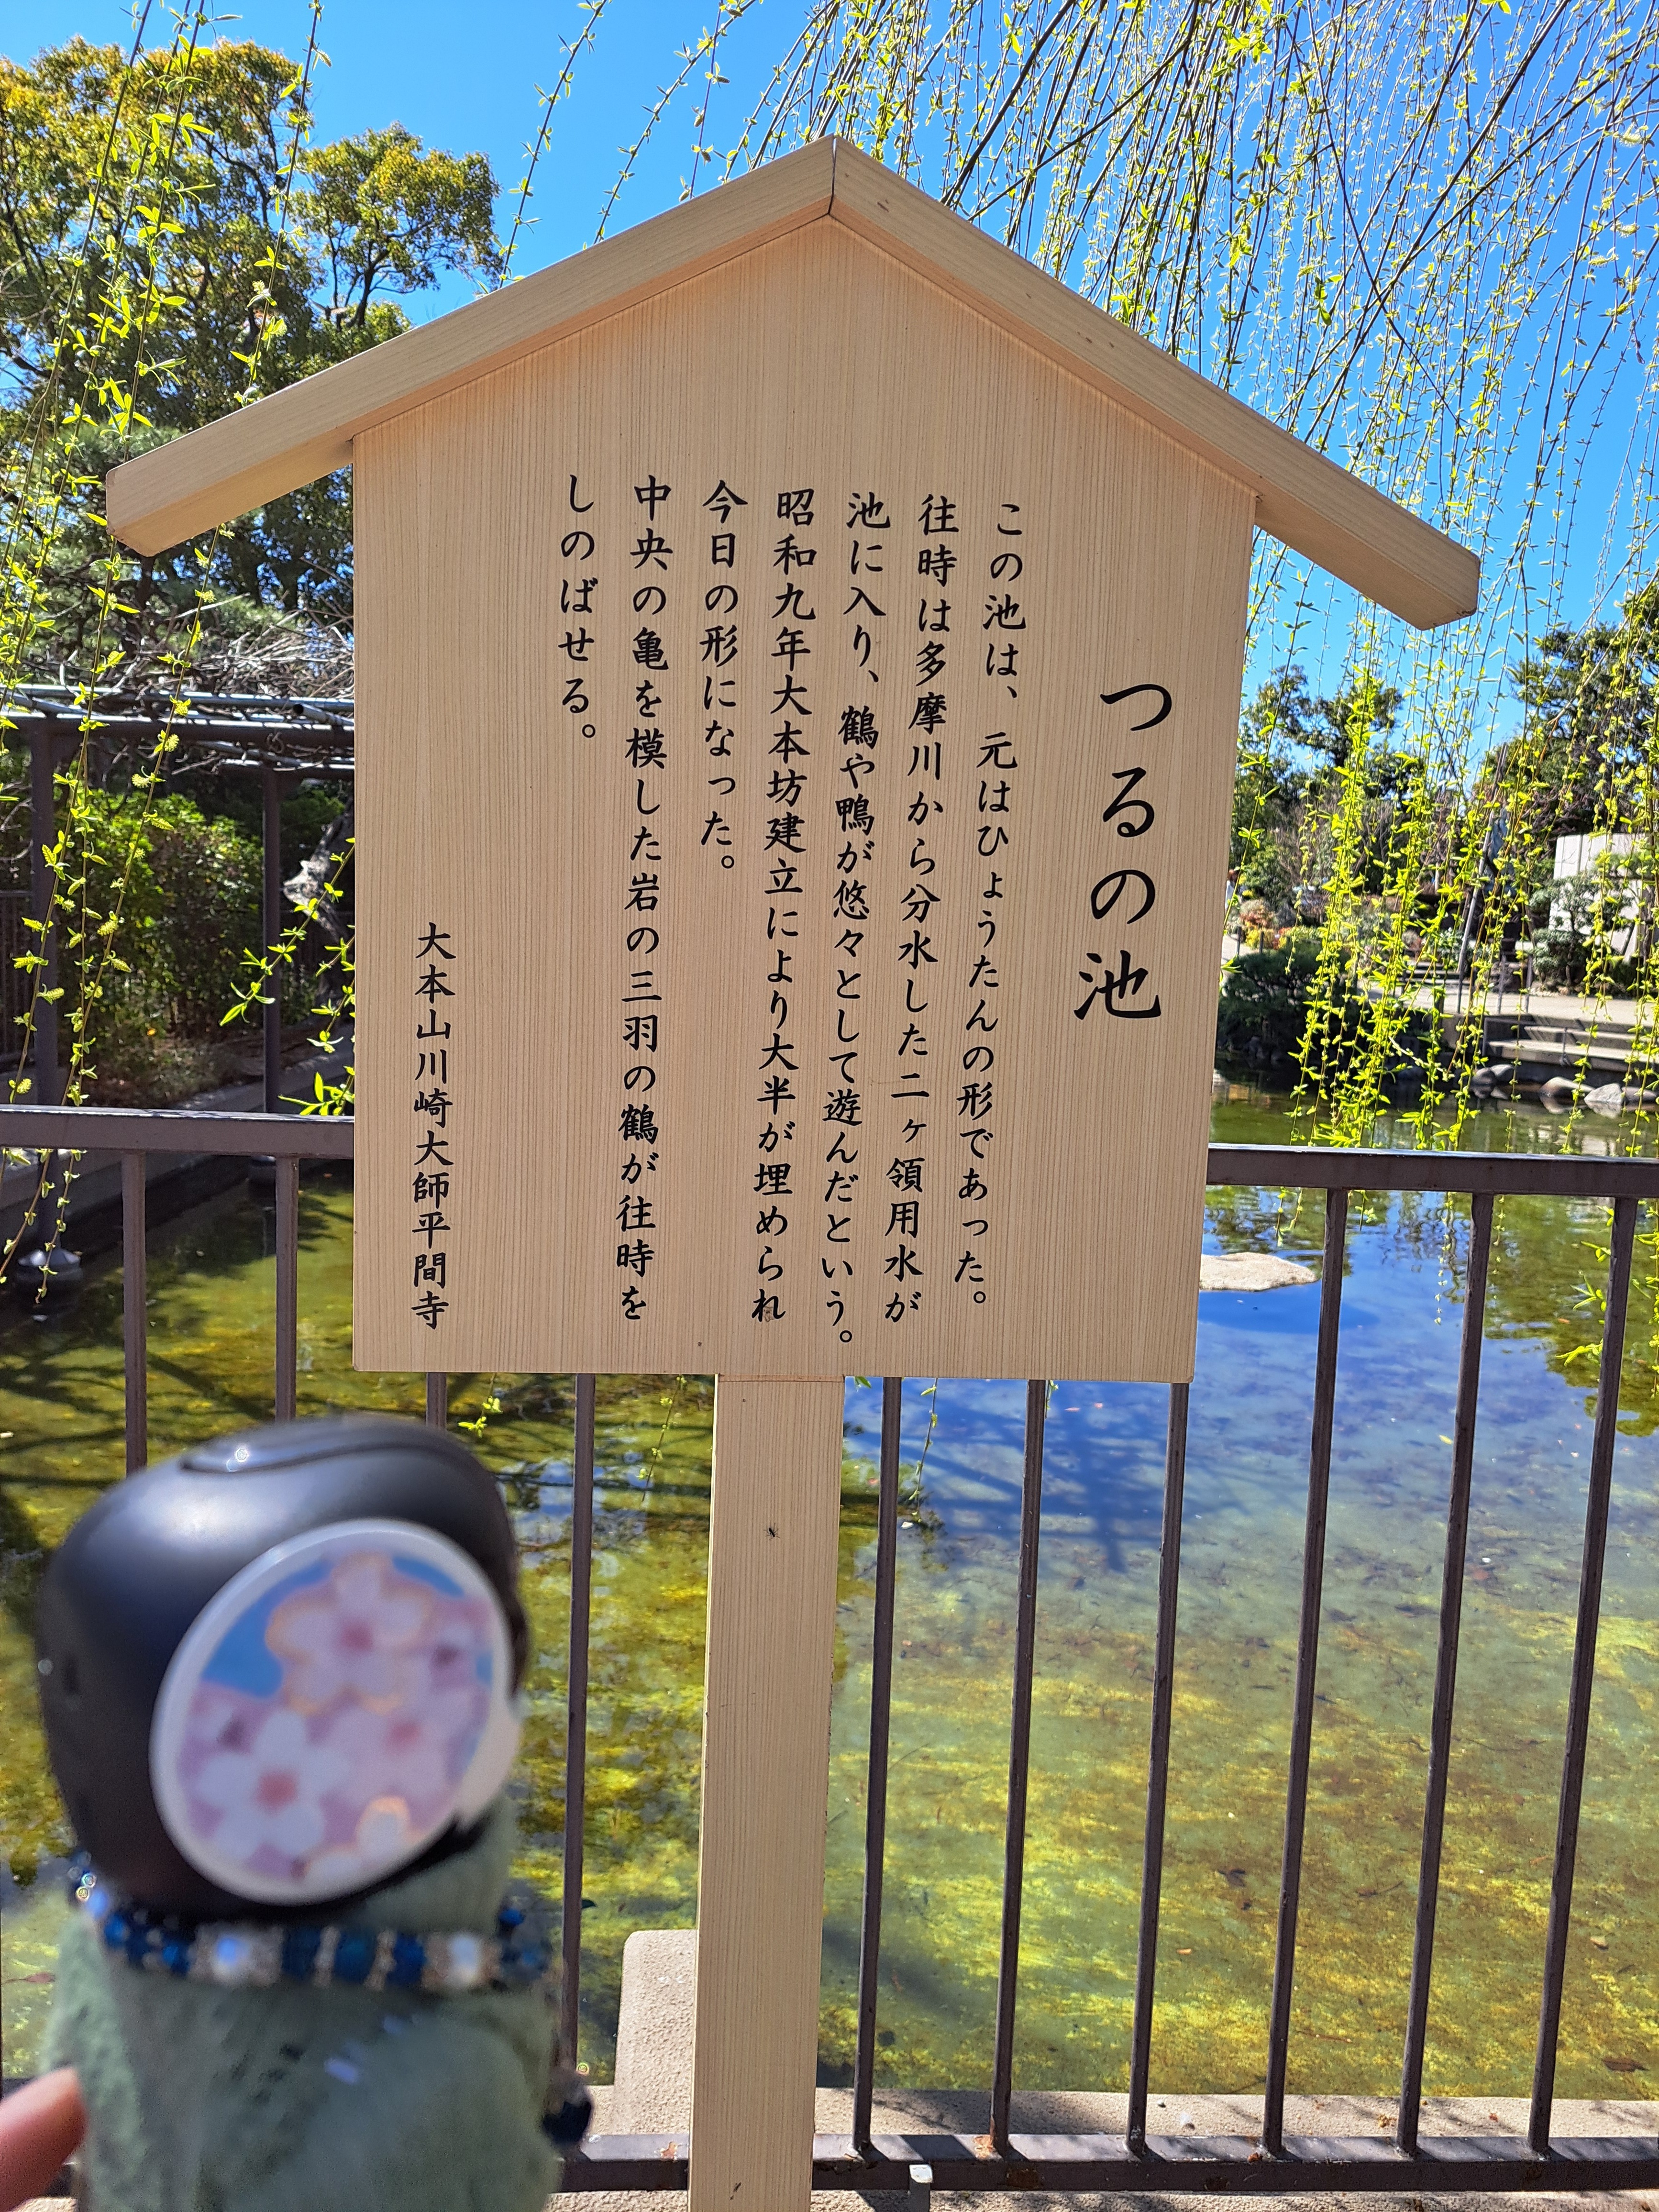 つるの池
この池は、元はひょうたんの形であった。
往時は多摩川から分水した二ヶ領用水が
池に入り、鶴や鴨が悠々として遊んだという。
昭和九年大本坊建立により大半が埋められ
今日の形になった。
中央の亀を模した岩の三羽の鶴が往時を
しのばせる。
大本山川崎大師平間寺